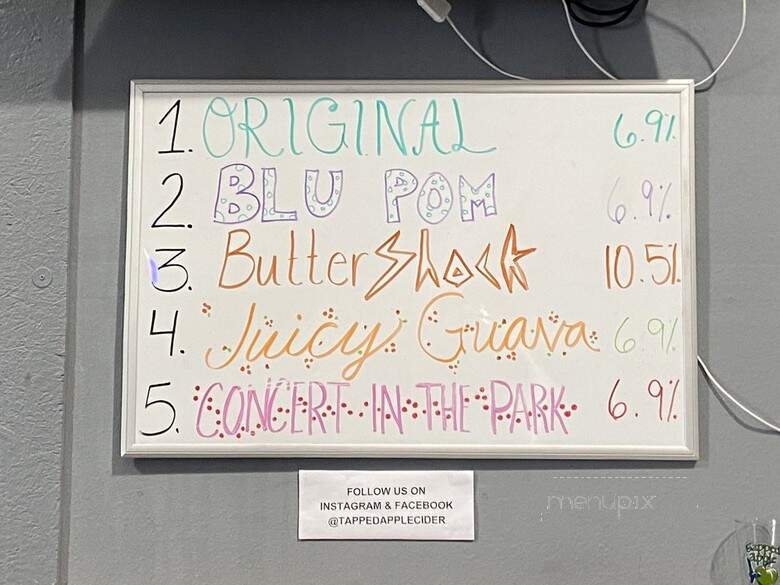 1. ORIGINAL 6.9%
2. BLU POM 6.9%
3. ButterShock 10.5%
4. Juicy Guava 6.9%
5. CONCERT IN THE PARK 6.9%
FOLLOW US ON
INSTAGRAM & FACEBOOK
@TAPPEDAPPLECIDER
menupix